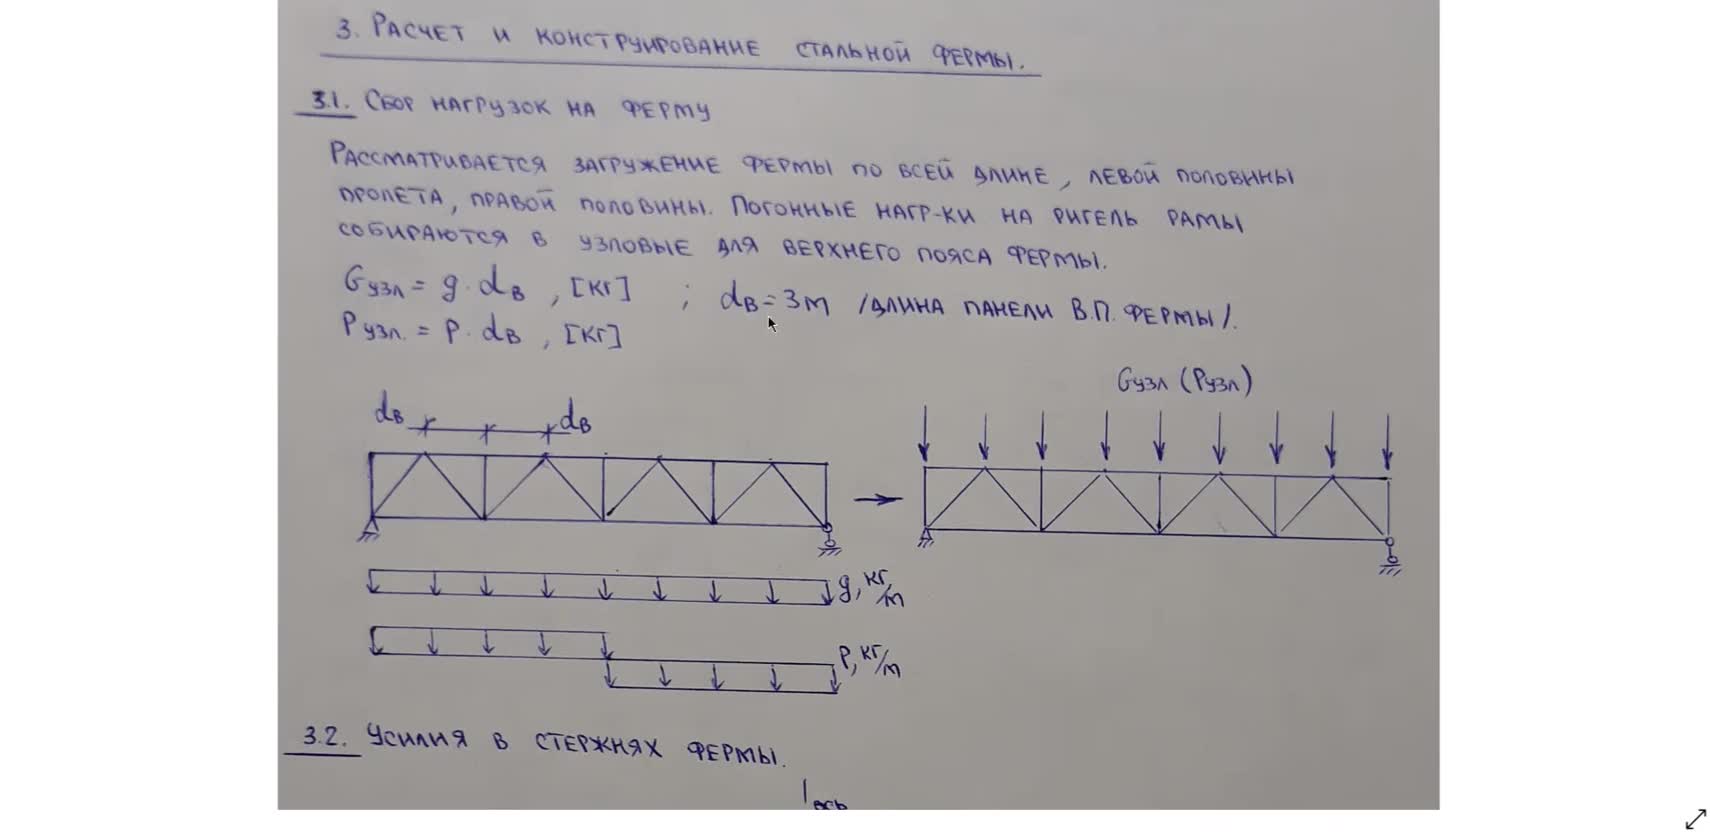 3. РАСЧЕТ И КОНСТРУИРОВАНИЕ СТАЛЬНОЙ ФЕРМЫ.
3.1. СБОР НАГРУЗОК НА ФЕРМУ
РАССМАТРИВАЕТСЯ ЗАГРУЖЕНИЕ ФЕРМЫ ПО ВСЕЙ ДЛИНЕ, ЛЕВОЙ ПОЛОВИНЫ
ПРОЛЕТА, ПРАВОЙ ПОЛОВИНЫ. ПОГОННЫЕ НАГР-КИ НА РИГЕЛЬ РАМЫ
СОБИРАЮТСЯ В УЗЛОВЫЕ ДЛЯ ВЕРХНЕГО ПОЯСА ФЕРМЫ.
Gузл = g · dв , [кг] ; dв = 3м /ДЛИНА ПАНЕЛИ В.П. ФЕРМЫ/.
Pузл. = p · dв , [кг]
Gузл (Pузл)
dв dв
g, кг/м
P, кг/м
3.2. УСИЛИЯ В СТЕРЖНЯХ ФЕРМЫ.
ось